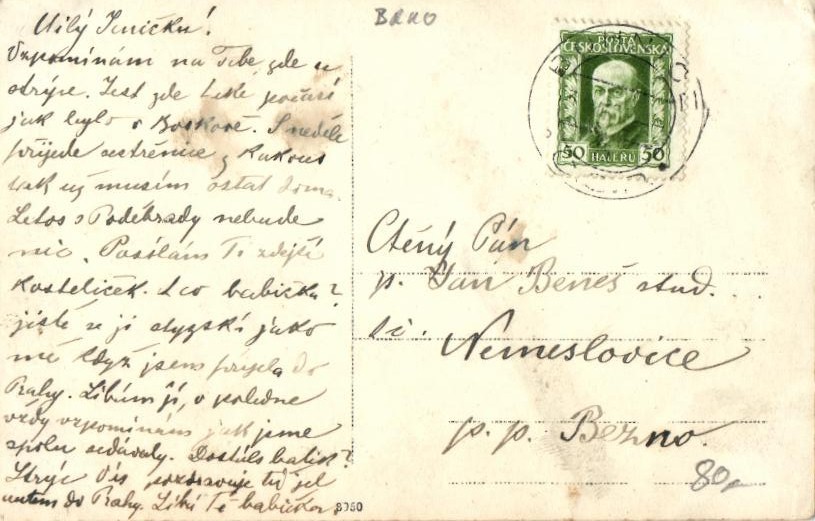 BRNO
Milý Jeníčku!
Vzpomínám na Tebe zde u
strýce. Jest zde také počasí
jak bylo v Boskově. V neděli
přijede sestřenice z
tak už musím ostat doma.
Letos s Poděbrady nebude
nic. Posílám Ti zdejší
kostelíček. A co babička?
jistě se jí stýzská jako
mé když jsem přijela do
Prahy. Líbám jí, v poledne
vždy vzpomínám jak jsme
spolu sedávaly. Dostáls balík?
Strýc Vás pozdravuje též jel
autem do Prahy. Líbá Tě babička.
3950
POŠTA
ČESKOSLOVENSKÁ
50 HALÉŘŮ 50
Ctěný Pán
p. Jan Beneš stud.
Nemeslovice
p. p. Bezno.
80,-